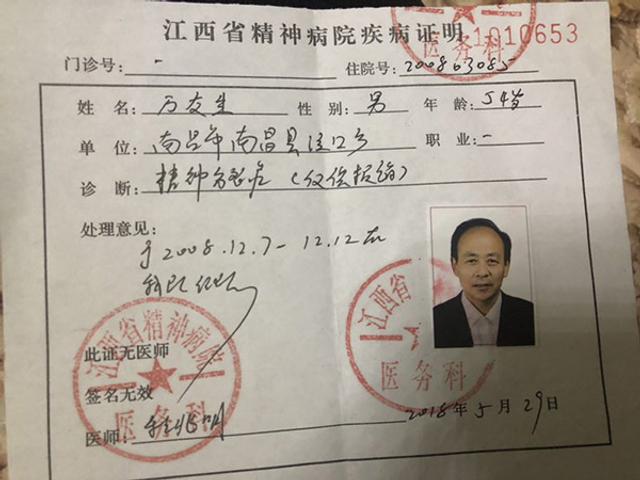 江西省精神病院疾病证明
1010653
门诊号: - 住院号: 200803085
姓名: 万友生 性别: 男 年龄: 54岁
单位: 南昌市南昌县泾口乡 职业: -
诊断: 精神分裂症(仅供报销)
处理意见:
于2008.12.7-12.12在
我院
此证无医师
签名无效
医师:
2018年5月29日
江西省精神病院
医务科
江西省
医务科
医务科